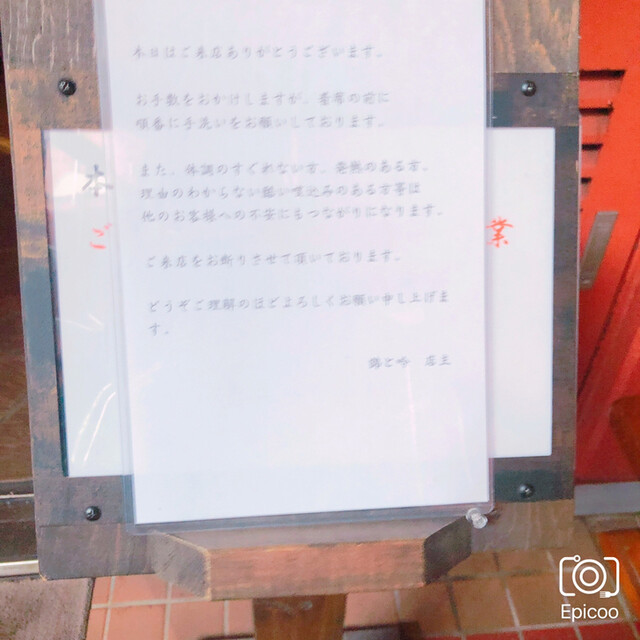 本日はご来店ありがとうございます。
お手数をおかけしますが、着席の前に
順番に手洗いをお願いしております。
また、体調のすぐれない方、発熱のある方、
理由のわからない酷い咳込みのある方等は
他のお客様への不安にもつながりになります。
ご来店をお断りさせて頂いております。
どうぞご理解のほどよろしくお願い申し上げま
す。
店主
本
ご
業
Epicoo